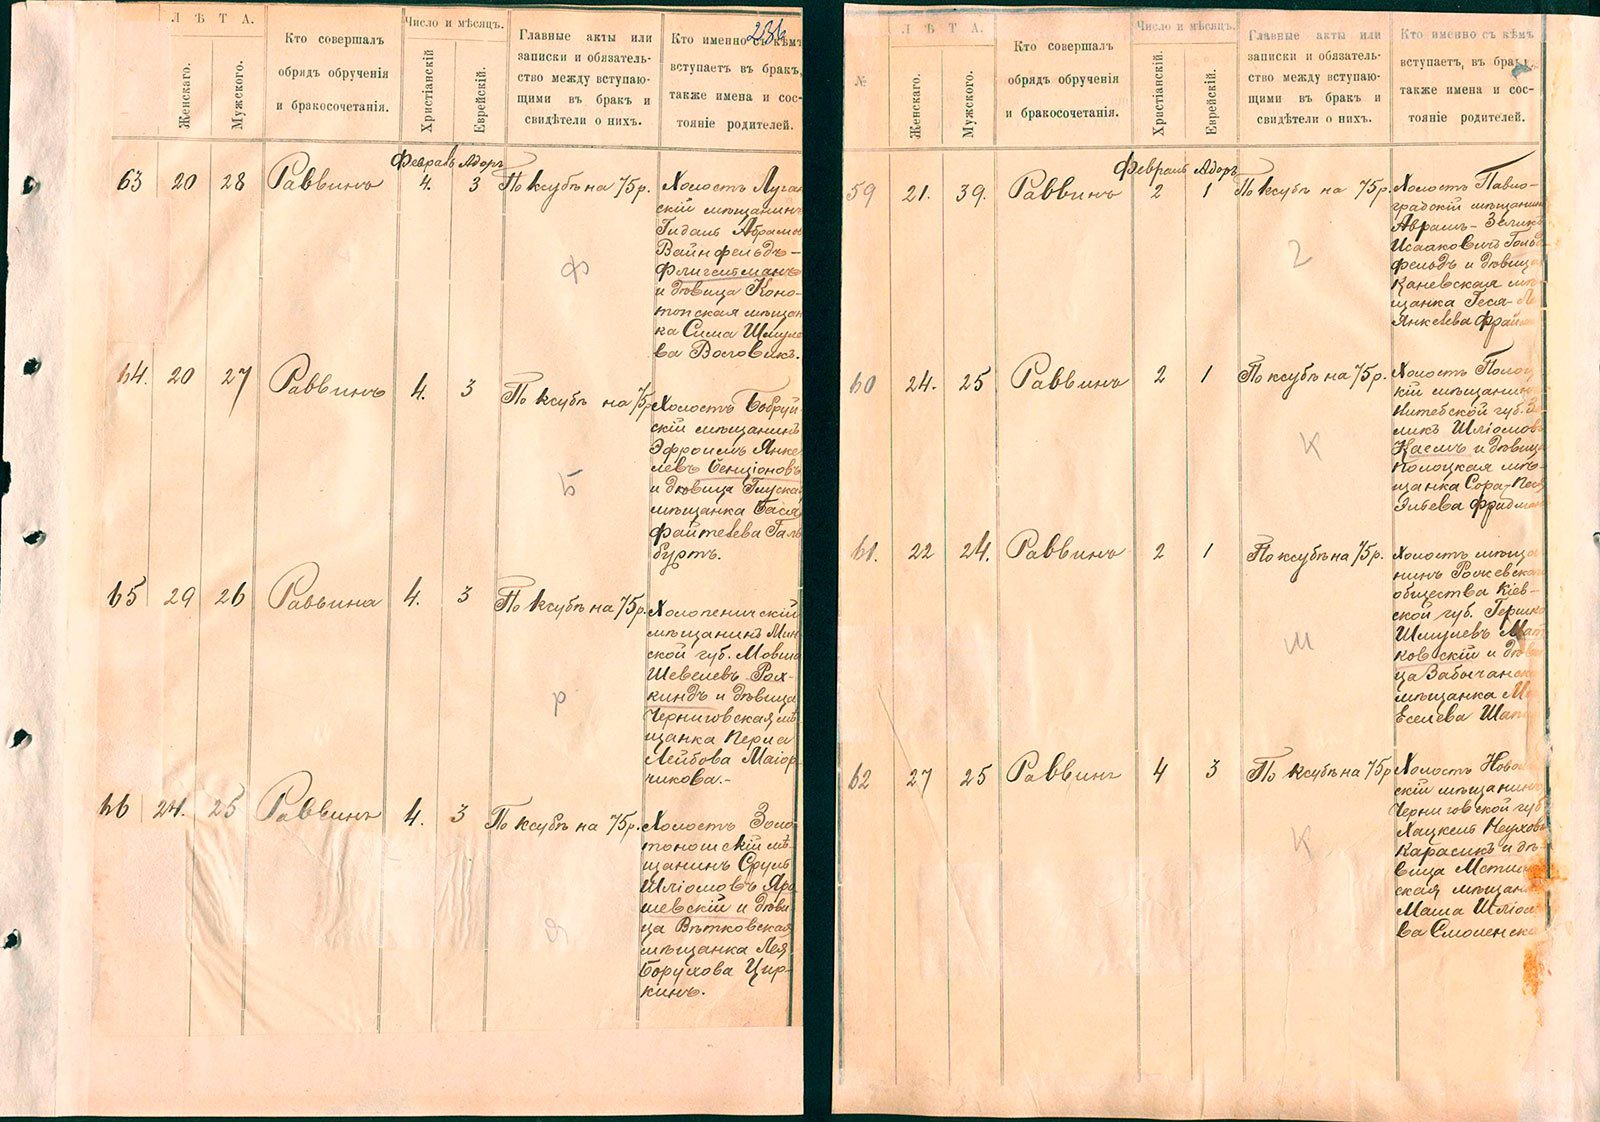 286
Л Ѣ Т А.
Женскаго.
Мужского.
Кто совершалъ
обрядъ обрученія
и бракосочетанія.
Число и мѣсяцъ.
Христіанскій
Еврейскій.
Главные акты или
записки и обязатель-
ство между вступаю-
щими въ бракъ и
свидѣтели о нихъ.
Кто именно съ кѣмъ
вступаетъ въ бракъ,
также имена и сос-
тояніе родителей.
Февраль Адоръ
63 20 28 Раввинъ 4. 3 По ксубѣ на 75 р.
Холостъ Луган
скій мѣщанинъ
Гидаль Абрамов
Вайнфельдъ-
Флигельтманъ
и дѣвица Коно-
топская мѣщан
ка Сима Шмуле
ва Восовикъ.
64. 20 27 Раввинъ 4. 3 По ксубѣ на 75 р.
Холостъ Бобруй-
скій мѣщанинъ
Эфроимъ Янке
левъ Бенціоновъ
и дѣвица Глуская
мѣщанка Бася
Файтелева Галь
буртъ.
65 29 26 Раввина 4. 3 По ксубѣ на 75 р.
Холопеничскій
мѣщанинъ Мин
ской губ. Мовша
Шевелевъ Рах-
киндъ и дѣвица
Черниговская мѣ
щанка Перла
Лейбова Маіор
чикова.-
66 24. 25 Раввинъ 4. 3 По ксубѣ на 75 р.
Холостъ Золо
тоношскій мѣ
щанинъ Сруль
Шліомовъ Яро
шевскій и дѣви
ца Вѣтковская
мѣщанка Лея
Борухова Цир-
кинъ.
Ф
Б
Р
Я
№
Л Ѣ Т А.
Женскаго.
Мужского.
Кто совершалъ
обрядъ обрученія
и бракосочетанія.
Число и мѣсяцъ.
Христіанскій
Еврейскій.
Главные акты или
записки и обязатель-
ство между вступаю-
щими въ бракъ и
свидѣтели о нихъ.
Кто именно съ кѣмъ
вступаетъ въ бракъ,
также имена и сос-
тояніе родителей.
Февраль Адоръ
59 21. 39. Раввинъ 2 1 По ксубѣ на 75 р.
Холостъ Павло-
градскій мѣщанинъ
Аврамъ-Зеликъ
Исааковичъ Гольд
фельдъ и дѣвица
Каневская мѣ-
щанка Геся-
Янкелева
60 24. 25 Раввинъ 2 1 По ксубѣ на 75 р.
Холостъ Полоц
кій мѣщанинъ
Витебской губ. Зе
ликъ Шліомовъ
Касль и дѣвица
Полоцкая мѣ-
щанка Сора-Песя
Эльева Фридман
61. 22 24. Раввинъ 2 1 По ксубѣ на 75 р.
Холостъ мѣща
нинъ
общества Кіев-
ской губ. Гершко
Шмулевъ Мать
ковскій и дѣви
ца
мѣщанка
Еселева
62 27 25 Раввинъ 4 3 По ксубѣ на 75 р
Холостъ Ново
скій мѣщанинъ
Черниговской губ
Хацкель
Карасикъ и дѣ-
вица Мстислав
ская мѣщан
Маша Шліо
ва Смоленск
Г
К
М
К